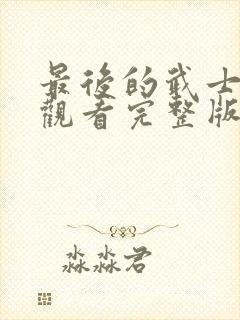 最後的武士
觀看完整版
淼淼君